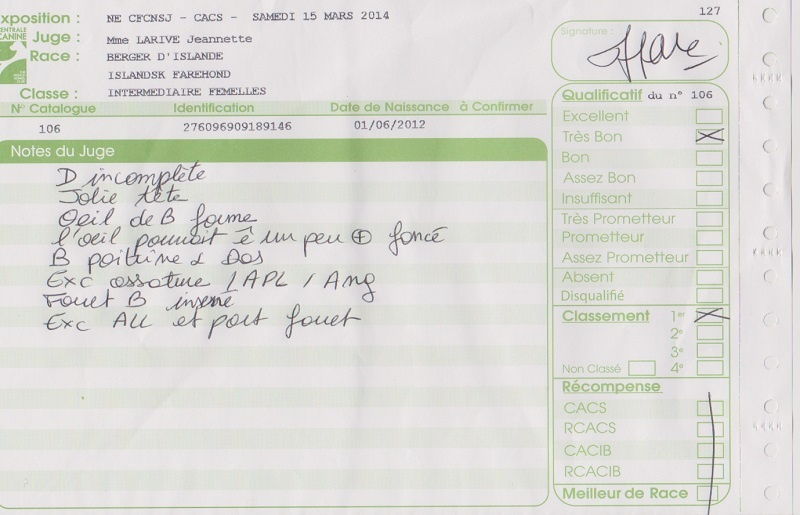 127
xposition : NE CFCNSJ - CACS - SAMEDI 15 MARS 2014
CENTRALE
CANINE
Juge : Mme LARIVE Jeannette
Race : BERGER D'ISLANDE
ISLANDSK FAREHOND
Classe : INTERMEDIAIRE FEMELLES
N° Catalogue Identification Date de Naissance à Confirmer
106 276096909189146 01/06/2012
Notes du Juge
D incomplète
Jolie tête
Oeil de B forme
l'oeil pourrait ê un peu ⊕ foncé
B poitrine & Dos
Exc ossature / APL / Ang
Fouet B inséré
Exc ALL et port fouet
Signature :
Qualificatif du n° 106
Excellent
Très Bon
Bon
Assez Bon
Insuffisant
Très Prometteur
Prometteur
Assez Prometteur
Absent
Disqualifié
Classement 1er
2e
3e
Non Classé 4e
Récompense
CACS
RCACS
CACIB
RCACIB
Meilleur de Race